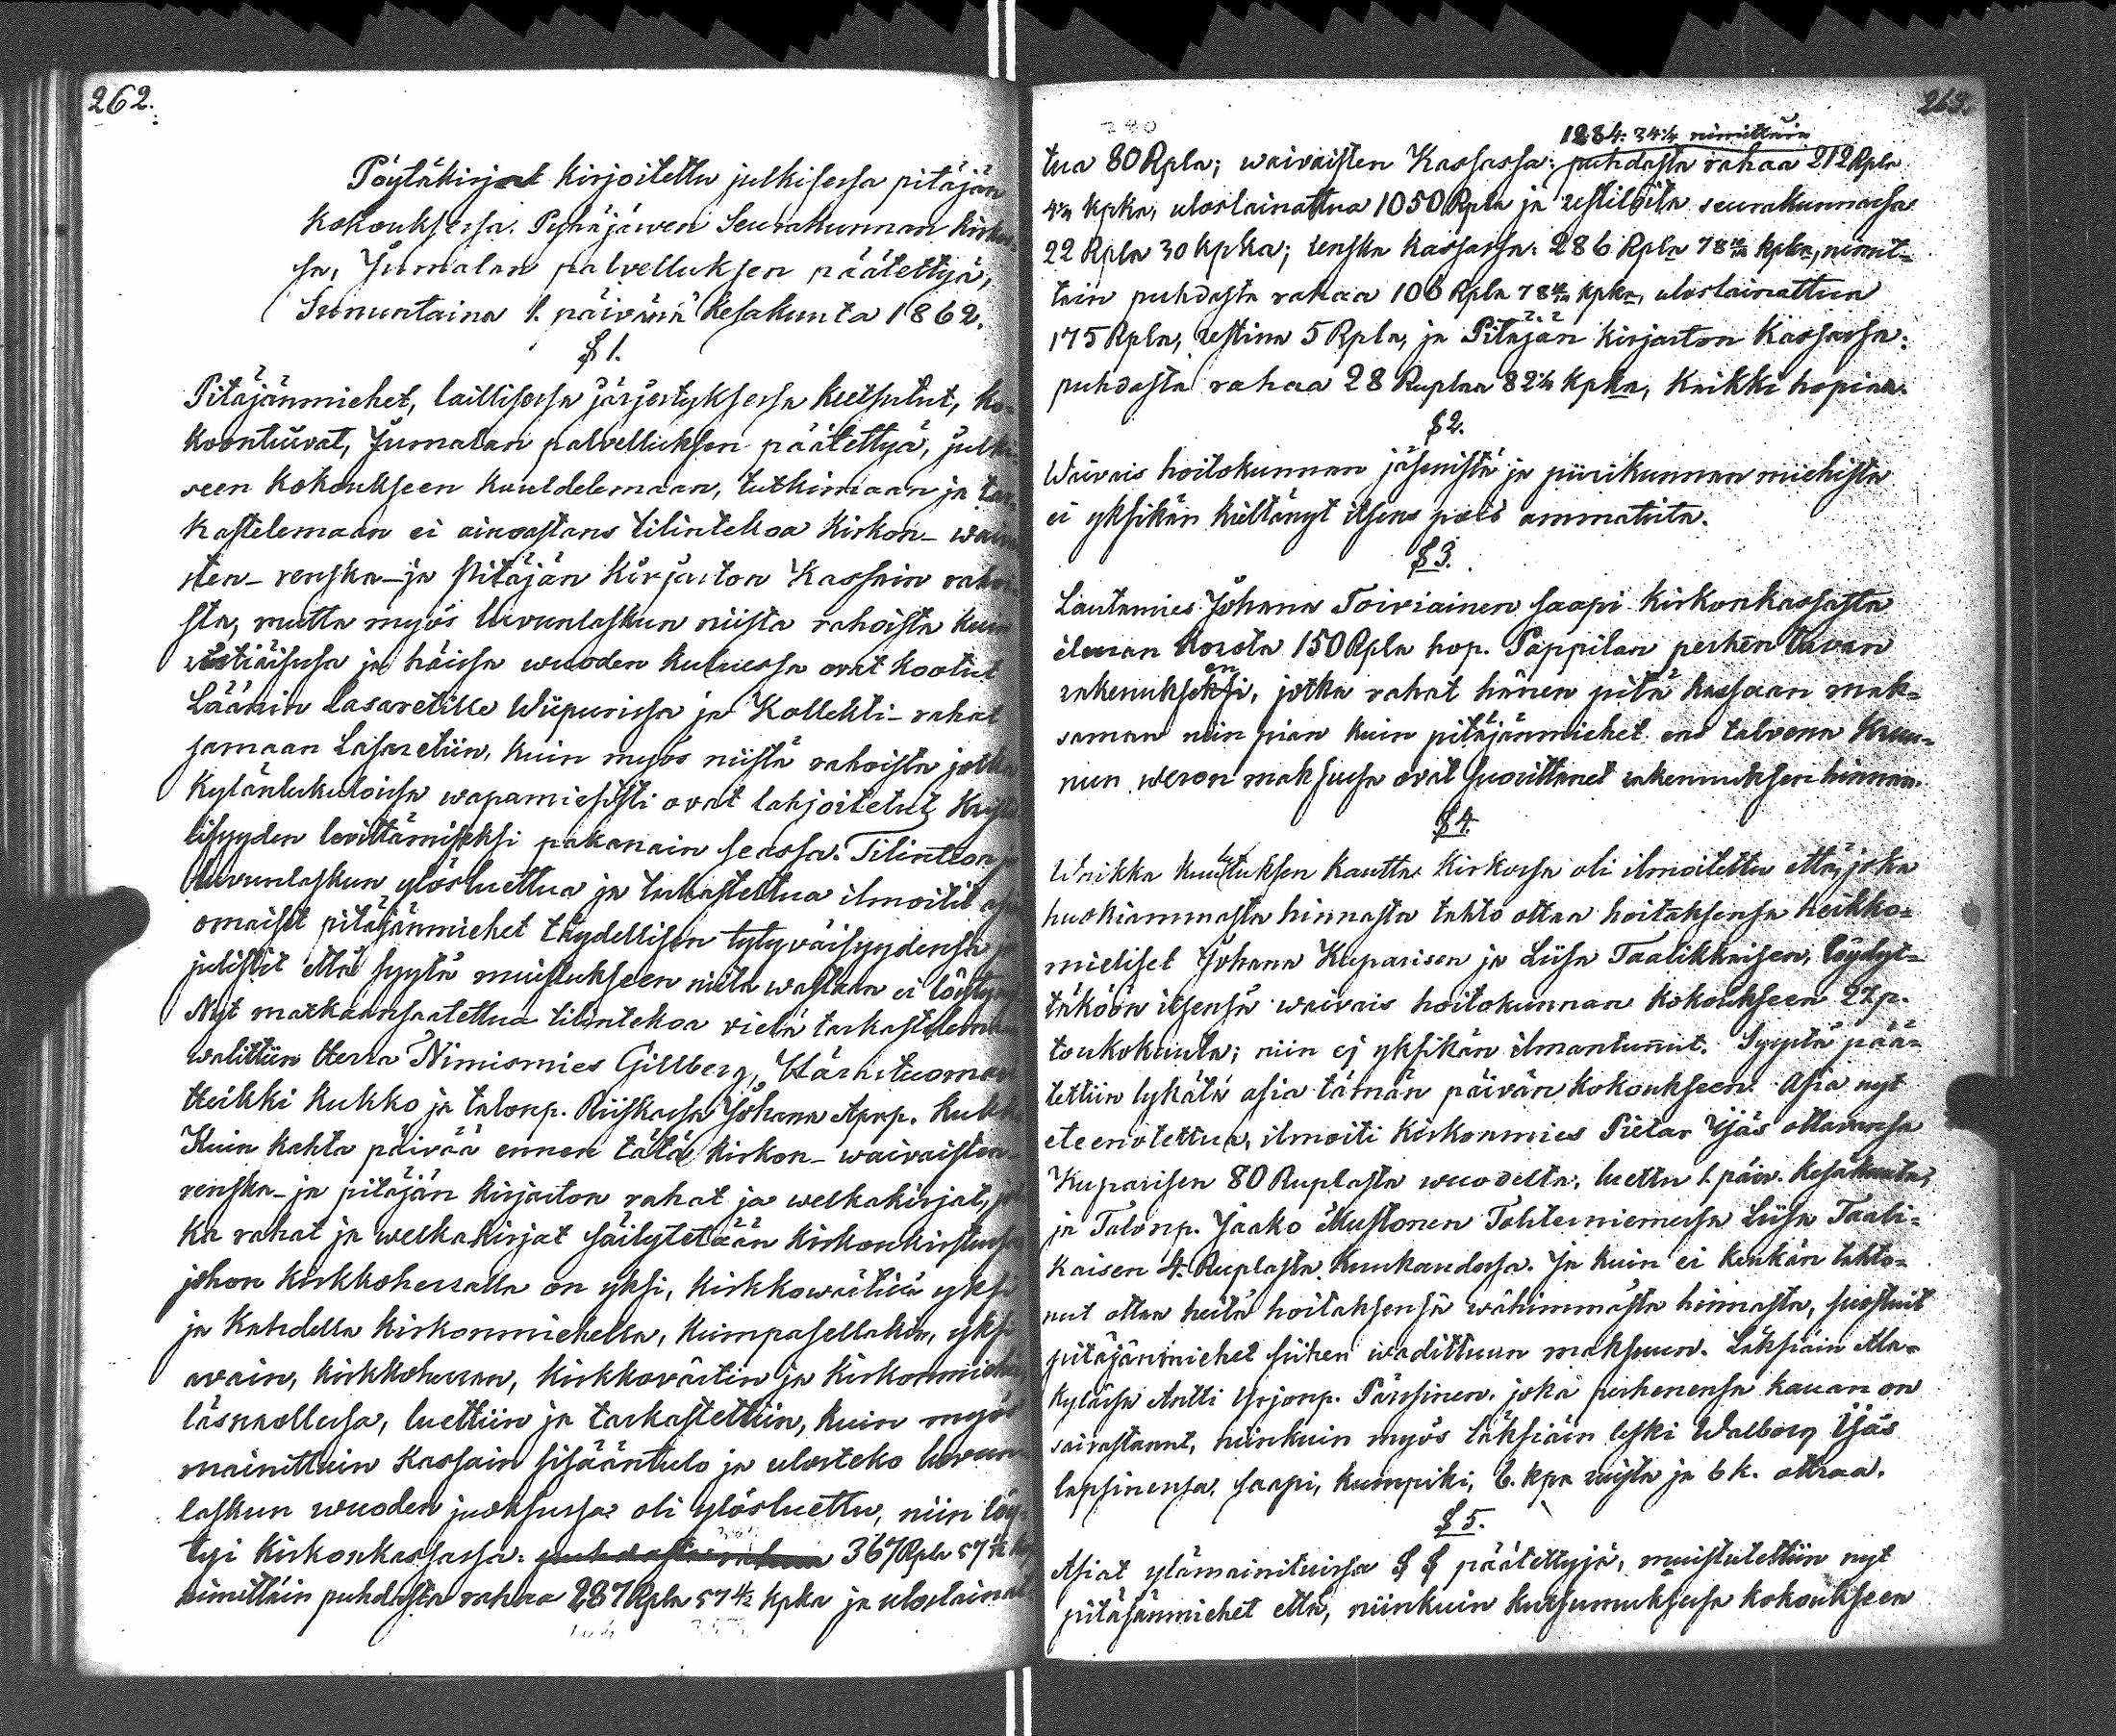 262.
Pöytäkirjat kirjoitettu julkisessa pitäjän
kokouksessa Pyhäjärven Seurakunnan kirkos-
sa, Jumalan palvelluksen päätettyä,
Sunnuntaina 1. päivänä Kesäkuuta 1862.
§ 1.
Pitäjänmiehet, laillisessa järjestyksessä kutsutut, ko-
koontuivat, Jumalan palvelluksen päätettyä, julki-
seen kokoukseen kuuldelemaan, tutkimaan ja tar-
kastelemaan ei ainoastans tilintekoa kirkon- waivai
sten- renska- ja Pitäjän Kirjaston Kassain rahoi-
sta, mutta myös luvunlaskun niistä rahoista kuin
ristiäisissä ja häissä wuoden kuluessa ovat kootut
Läänin lasaretille Wiipurissa ja Kollekti-rahat
samaan Lasaretiin, kuin myös niistä rahoista jotka
Kylänlukuloissa wapamiesisti ovat lahjoitetut Kristi
lisyyden levittämiseksi pakanain seassa. Tilinteon ja
luvunlaskun ylösluettua ja tarkastettua ilmoitit asi
omaiset pitäjänmiehet täydellisen tytyväisyydensä ja
julistit että syytä muistukseen niitä wastaan ei löytynyt
Nyt matkaansaatettua tilintekoa vielä tarkastelemaan
walittiin Herra Nimismies Gillberg, Härnituomari
Heikki Kukko ja talonp. Riiskassa Johana Aprp. Kukko
Kuin kahta päivää ennen tätä kirkon- waivaisten-
renska- ja pitäjän kirjaston rahat ja welkakirjat, jot
ka rahat ja welkakirjat säilytetään kirkonkirstussa
johon kirkkoherralla on yksi, kirkkowärtillä yksi
ja kahdella kirkonmiehella, kumpasellakin, yksi
avain, kirkkoherran, kirkkovärtin ja kirkonmiehen
läsnäollessa, luettiin ja tarkastettiin, kuin myös
mainittuin Kassain sisääntulo ja ulosteko luvun
laskun wuoden juoksussa oli ylösluettu, niin löy-
tyi Kirkonkassassa: puhdasta rahaa 367 Rpla 57 1/2 kp
nimittäin puhdasta rahaa 287 Rpla 57 1/2 kpka ja uloslainat
263.
1284: 34 1/4 nimittäin
tua 80 Rpla; waivaisten Kassassa: puhdasta rahaa 212 Rpla
4 1/4 kpka, uloslainattua 1050 Rpla ja restilöitä seurakunnassa
22 Rpla 30 kpka; renska kassassa: 286 Rpla 78 kpka, nimit-
täin puhdasta rahaa 106 Rpla 78 kpka, uloslainattua
175 Rpla, restina 5 Rpla, ja Pitäjän kirjaston Kassassa:
puhdasta rahaa 28 Ruplaa 82 1/4 kpka, kaikki hopiaa.
§ 2.
Waivais hoitokunnan jäsenistä ja piirikunnan miehistä
ei yksikän kieltänyt itsens pois ammatista.
§ 3.
Lautamies Johana Toiviainen saapi kirkonkassasta
ilman korota 150 Rpla hop. Pappilan perhen tuvan
en
rakenuksksi, jotka rahat hänen pitä kassaan mak-
saman niin pian kuin pitäjänmiehet ens talvena kruu-
nun weron maksussa ovat suorittanet rakennuksen hinnan.
§ 4.
Waikka kuulutuksen kautta kirkossa oli ilmoitettu että, joka
huokiammasta hinnasta tahto ottaa hoitaksensa heikko-
mieliset Johana Kuparisen ja Liisa Taalikkaisen, löydyt-
täköön itsensä waivais hoitokunnan kokoukseen 27 p.
toukokuuta; niin ej yksikän ilmantunnit. Syystä pää-
tettiin lykätä asia tämän päivän kokoukseen. Asia nyt
eteenotettua, ilmoiti Kirkonmies Pietar Yjäs ottavansa
Kuparisen 80 Ruplasta wuodelta, luettu 1. päiv. Kesäkuuta,
ja Talonp. Jaako Mustonen Tahteniemessä Liisa Taali-
kaisen 4. Ruplasta kuukaudessa. Ja kuin ei kenkän tahto-
nut ottaa heitä hoitaksensa wähimmästä hinnasta, suostuit
pitäjänmiehet siihen wadittuun maksuun. Läksiäin Ala-
kylässä Antti Yrjonp. Pärssinen, joka perhenensä kauan on
sairastanut, niinkuin myös läksiäin leski Walborg Yjäs
lapsinensa, saapi, kumpiki, 6. kpa ruista ja 6 k. ottraa.
§ 5.
Asiat ylämainituissa § § päätettyjä, muistutettiin nyt
pitäjänmiehet että, niinkuin kutsumuksessa kokoukseen